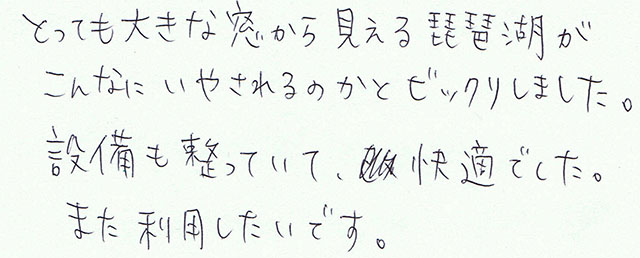 とっても大きな窓から見える琵琶湖が
こんなにいやされるのかとビックリしました。
設備も整っていて、快適でした。
また利用したいです。